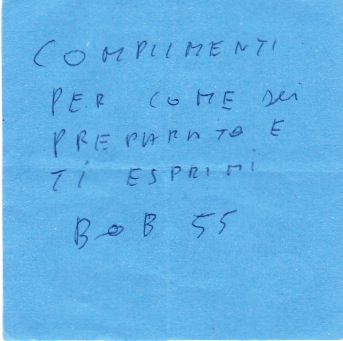 COMPLIMENTI
PER COME sei
PREPARATO E
Ti ESPRIMI
BoB 55